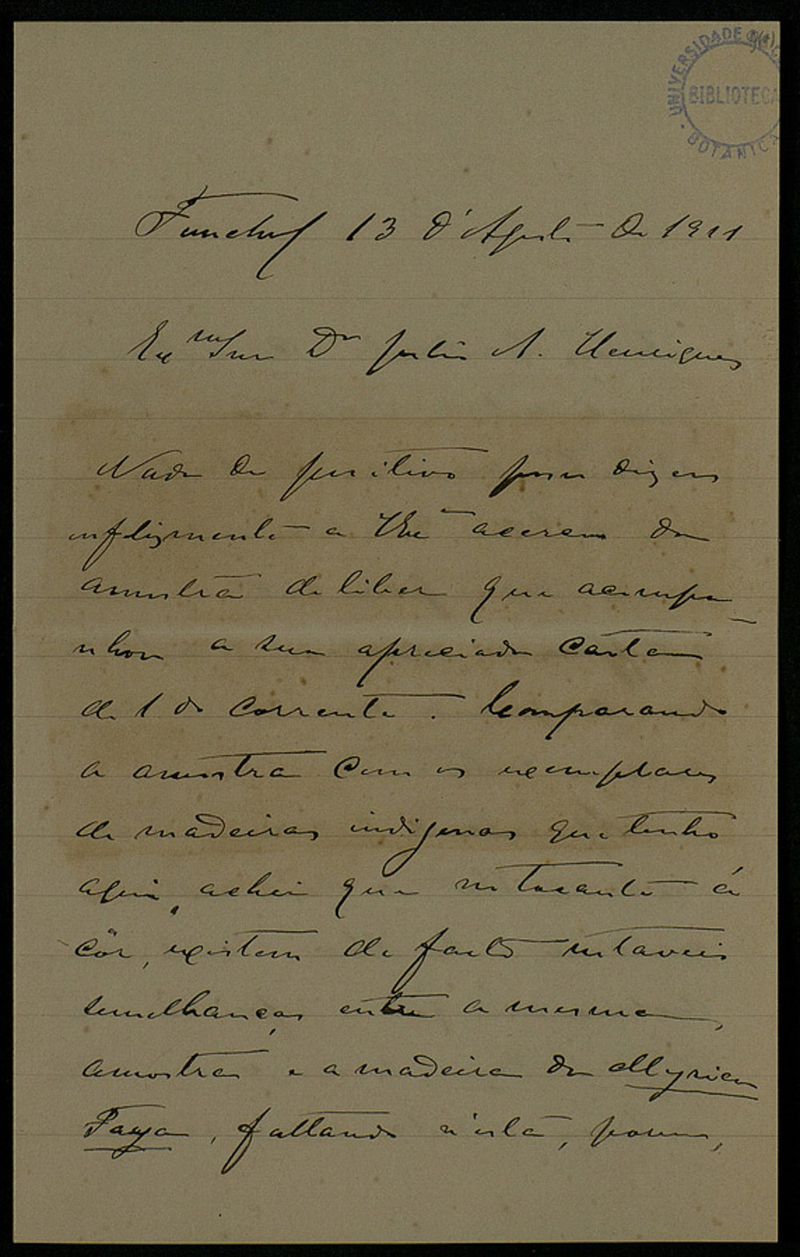 UNIVERSIDADE
BIBLIOTECA
BOTANICA
Funchal 13 d'Agosto de 1911
Exmo Snr Dr Julio A. Henriques
Nada de positivo posso dizer
infelizmente a V Exa acerca da
amostra de liber que acompa-
nhou a sua apreciada carta
de 1 do corrente. Comparando
a amostra com os exemplares
de madeiras indigenas que tenho
aqui, achei que no tocante á
côr, existem de facto notaveis
semelhanças entre a mesma
amostra e a madeira da Myrica
Faya, faltando n'esta, porem,